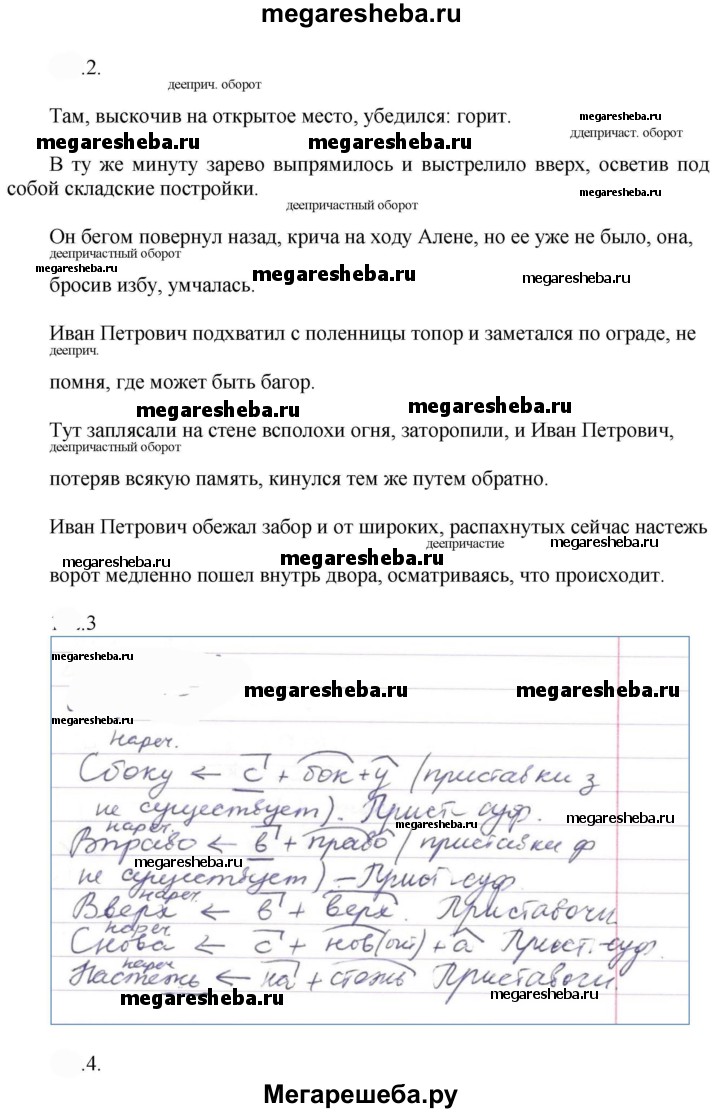 megaresheba.ru
.2.
дееприч. оборот
Там, выскочив на открытое место, убедился: горит.
megaresheba.ru
ддепричаст. оборот
megaresheba.ru megaresheba.ru
В ту же минуту зарево выпрямилось и выстрелило вверх, осветив под
собой складские постройки.
megaresheba.ru
деепричастный оборот
Он бегом повернул назад, крича на ходу Алене, но ее уже не было, она,
деепричастный оборот
megaresheba.ru megaresheba.ru megaresheba.ru
бросив избу, умчалась.
Иван Петрович подхватил с поленницы топор и заметался по ограде, не
дееприч.
помня, где может быть багор.
megaresheba.ru megaresheba.ru
Тут заплясали на стене всполохи огня, заторопили, и Иван Петрович,
деепричастный оборот
потеряв всякую память, кинулся тем же путем обратно.
Иван Петрович обежал забор и от широких, распахнутых сейчас настежь
деепричастие
megaresheba.ru megaresheba.ru megaresheba.ru
ворот медленно пошел внутрь двора, осматриваясь, что происходит.
.3
megaresheba.ru
megaresheba.ru megaresheba.ru
megaresheba.ru
нареч.
Сбоку ← с + бок + у (приставки з
не существует). Прист-суф.
нареч. megaresheba.ru
Вправо ← в + право (приставки ф
megaresheba.ru
не существует) – Прист-суф.
нареч.
Вверх ← в + верх. Приставочн.
нареч.
Снова ← с + нов(ый) + а Прист.-суф.
нареч.
Настежь ← на + стожь Приставочн.
megaresheba.ru megaresheba.ru megaresheba.ru
.4.
Мегарешеба.ру